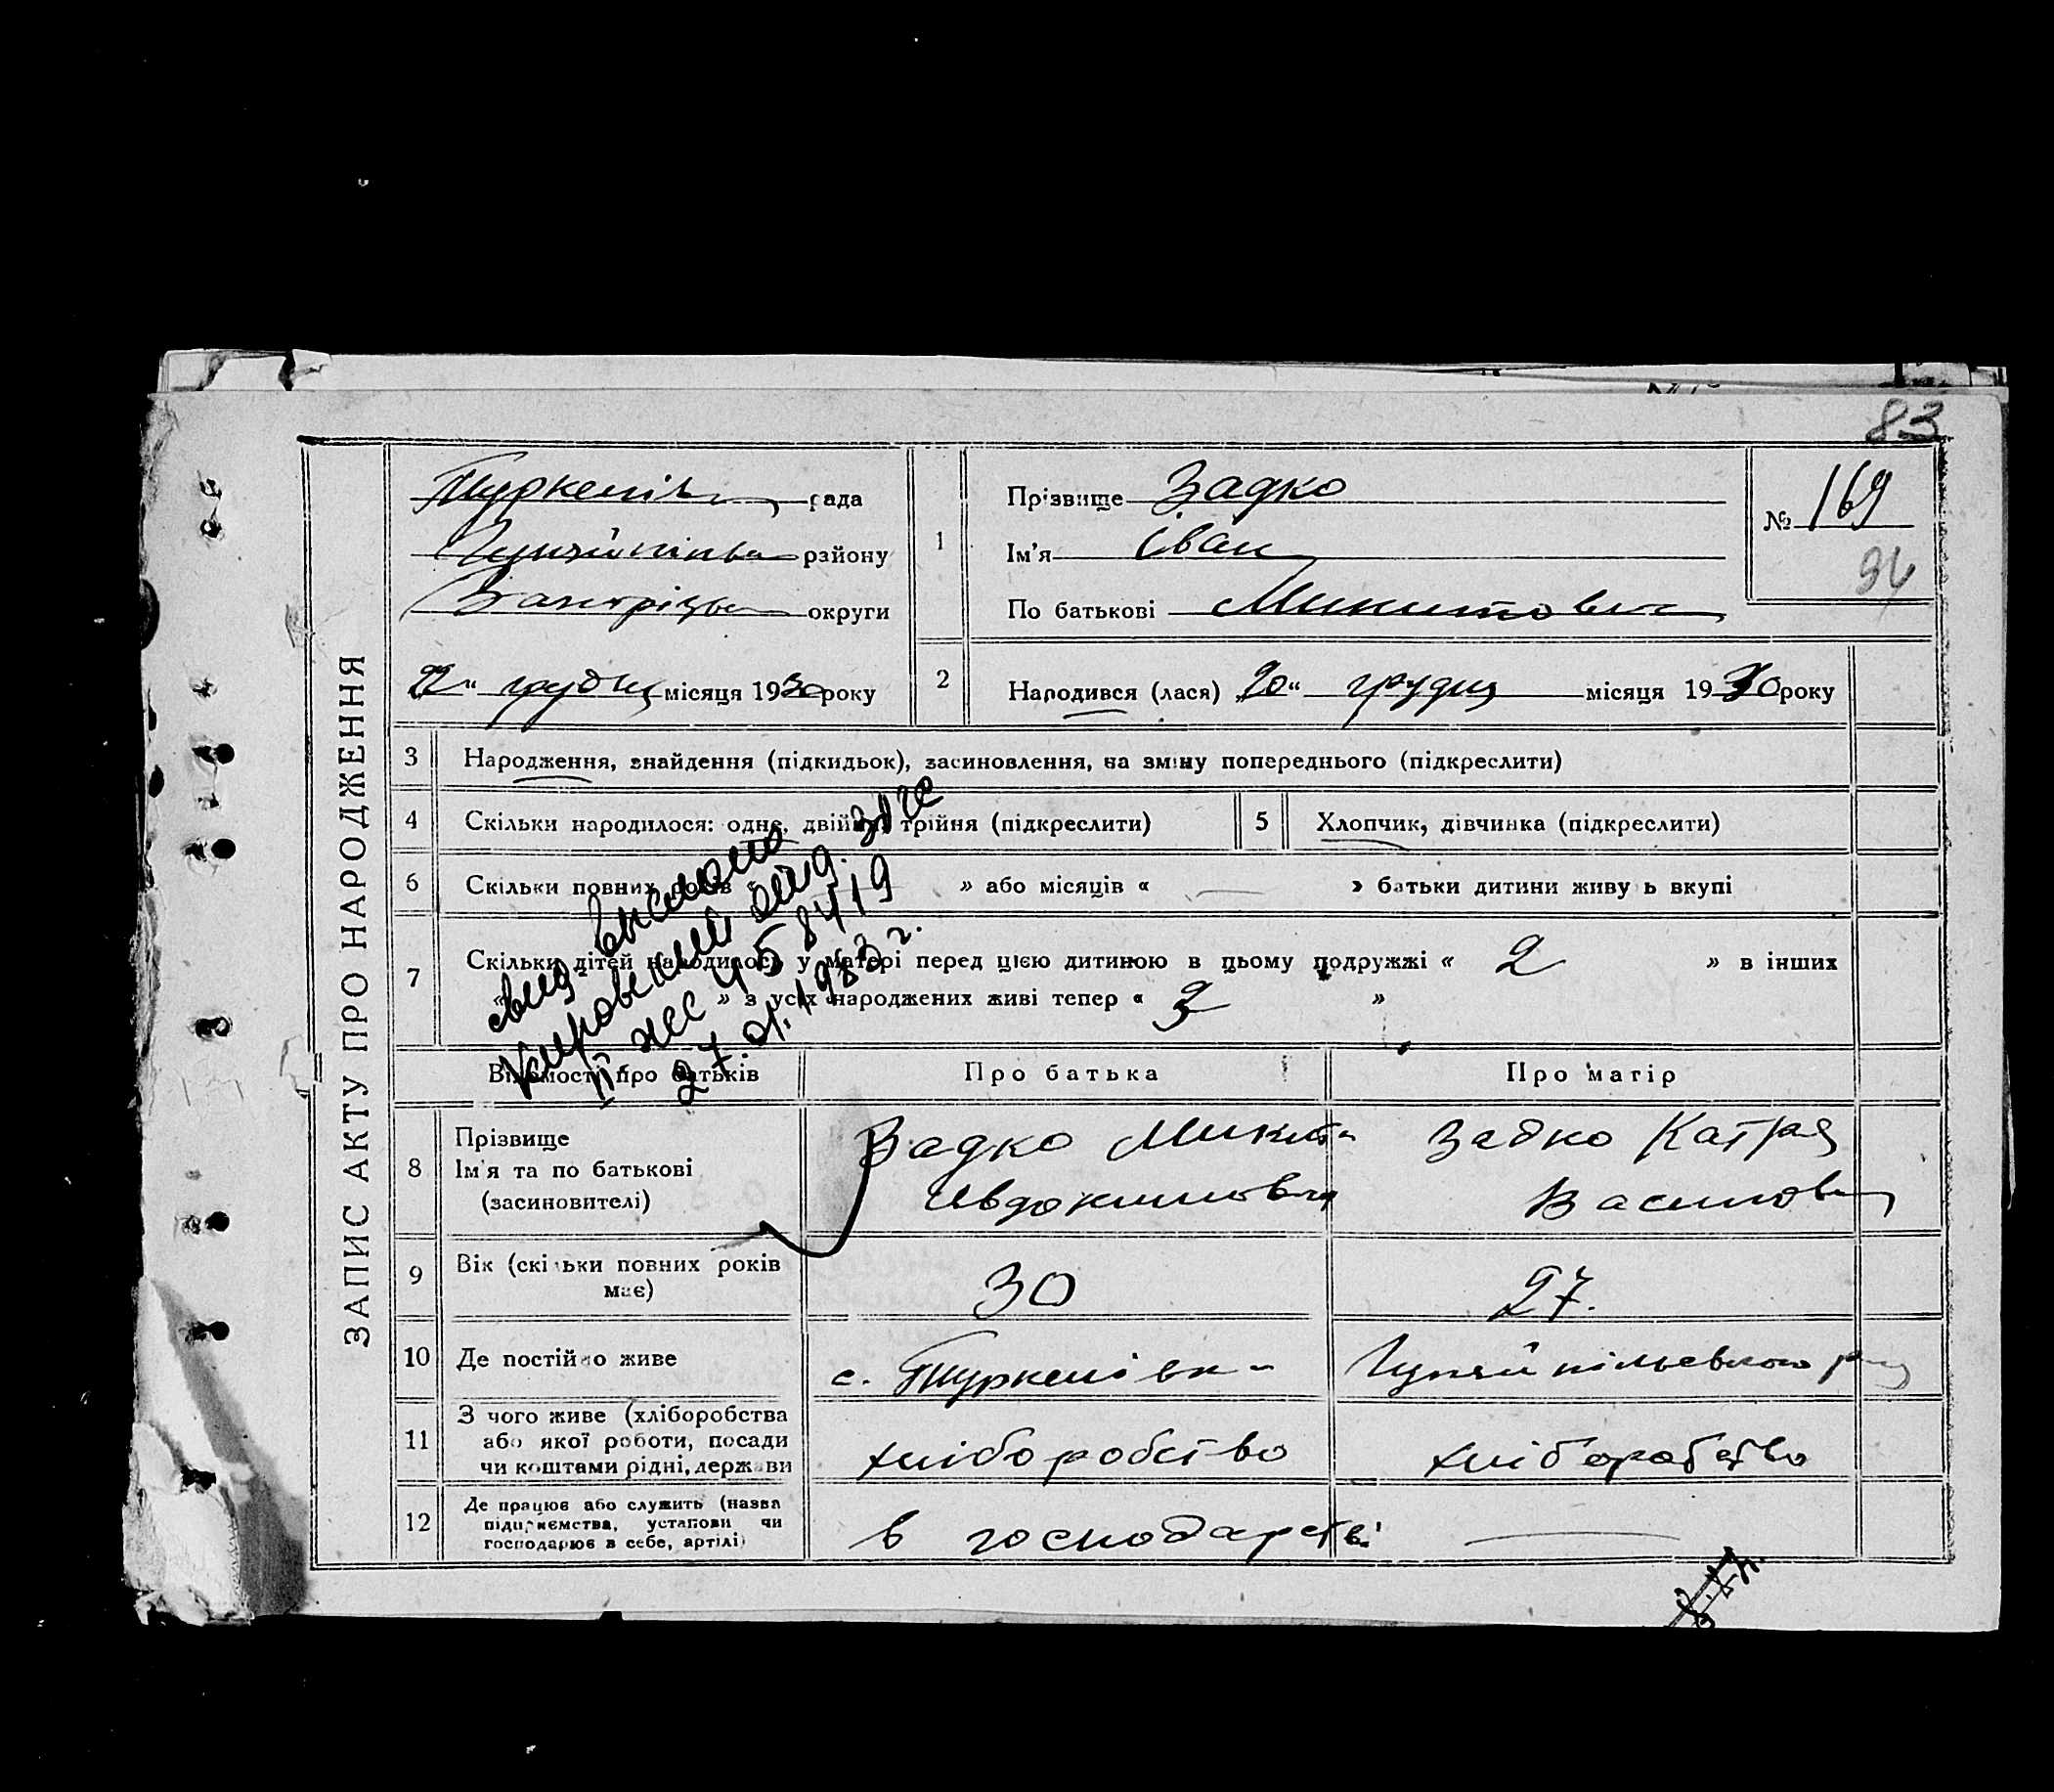 83
ЗАПИС АКТУ ПРО НАРОДЖЕННЯ
Туркенівс рада
району
округи
22 " грудня місяця 1930 року
1
Прізвище Задко
Ім'я Іван
По батькові Микитович
№ 169
94
2 Народився (лася) „20 " грудня місяця 1930 року
3 Народження, знайдення (підкидьок), засиновлення, на зміну попереднього (підкреслити)
4 Скільки народилося: одне, двійня, трійня (підкреслити)
5 Хлопчик, дівчинка (підкреслити)
6 Скільки повних років « — » або місяців « — » батьки дитини живуть вкупі
7 Скільки дітей народилось у матері перед цією дитиною в цьому подружжі « 2 » в інших
« » з усіх народжених живі тепер « 2 »
свид. выслано
Кировский отд. ЗАГС
II ЖС 458419
27. 01. 1983 г.
Відомості про батьків
Про батька
Про матір
8 Прізвище
Ім'я та по батькові
(засиновителі)
Задко Микита
Овдокимович
Задко Катря
Василовн
9 Вік (скільки повних років
має)
30
27.
10 Де постійно живе
с. Туркенівка
Гуляйпільського
11 З чого живе (хліборобства
або якої роботи, посади
чи коштами рідні, держави
хліборобство
хліборобство
12 Де працює або служить (назва
підприємства, установи чи
господарює в себе, артілі)
в господарстві
—